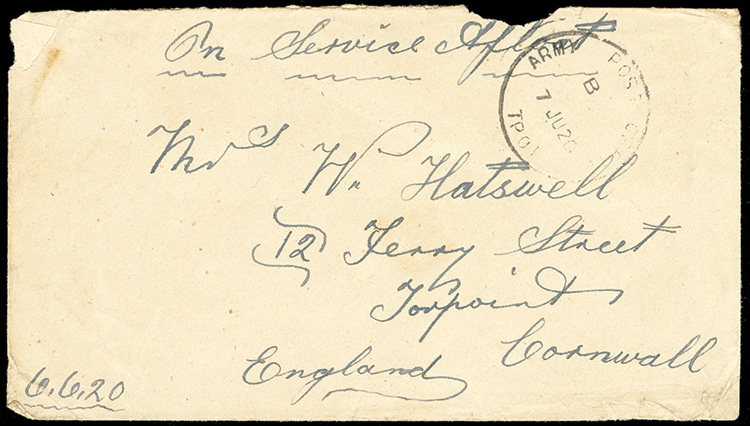 On Service Afloat
ARMY POST
B
7 JU 20
TPO 1
Mrs W. Hatswell
12 Ferry Street
Torpoint
Cornwall
England
6.6.20